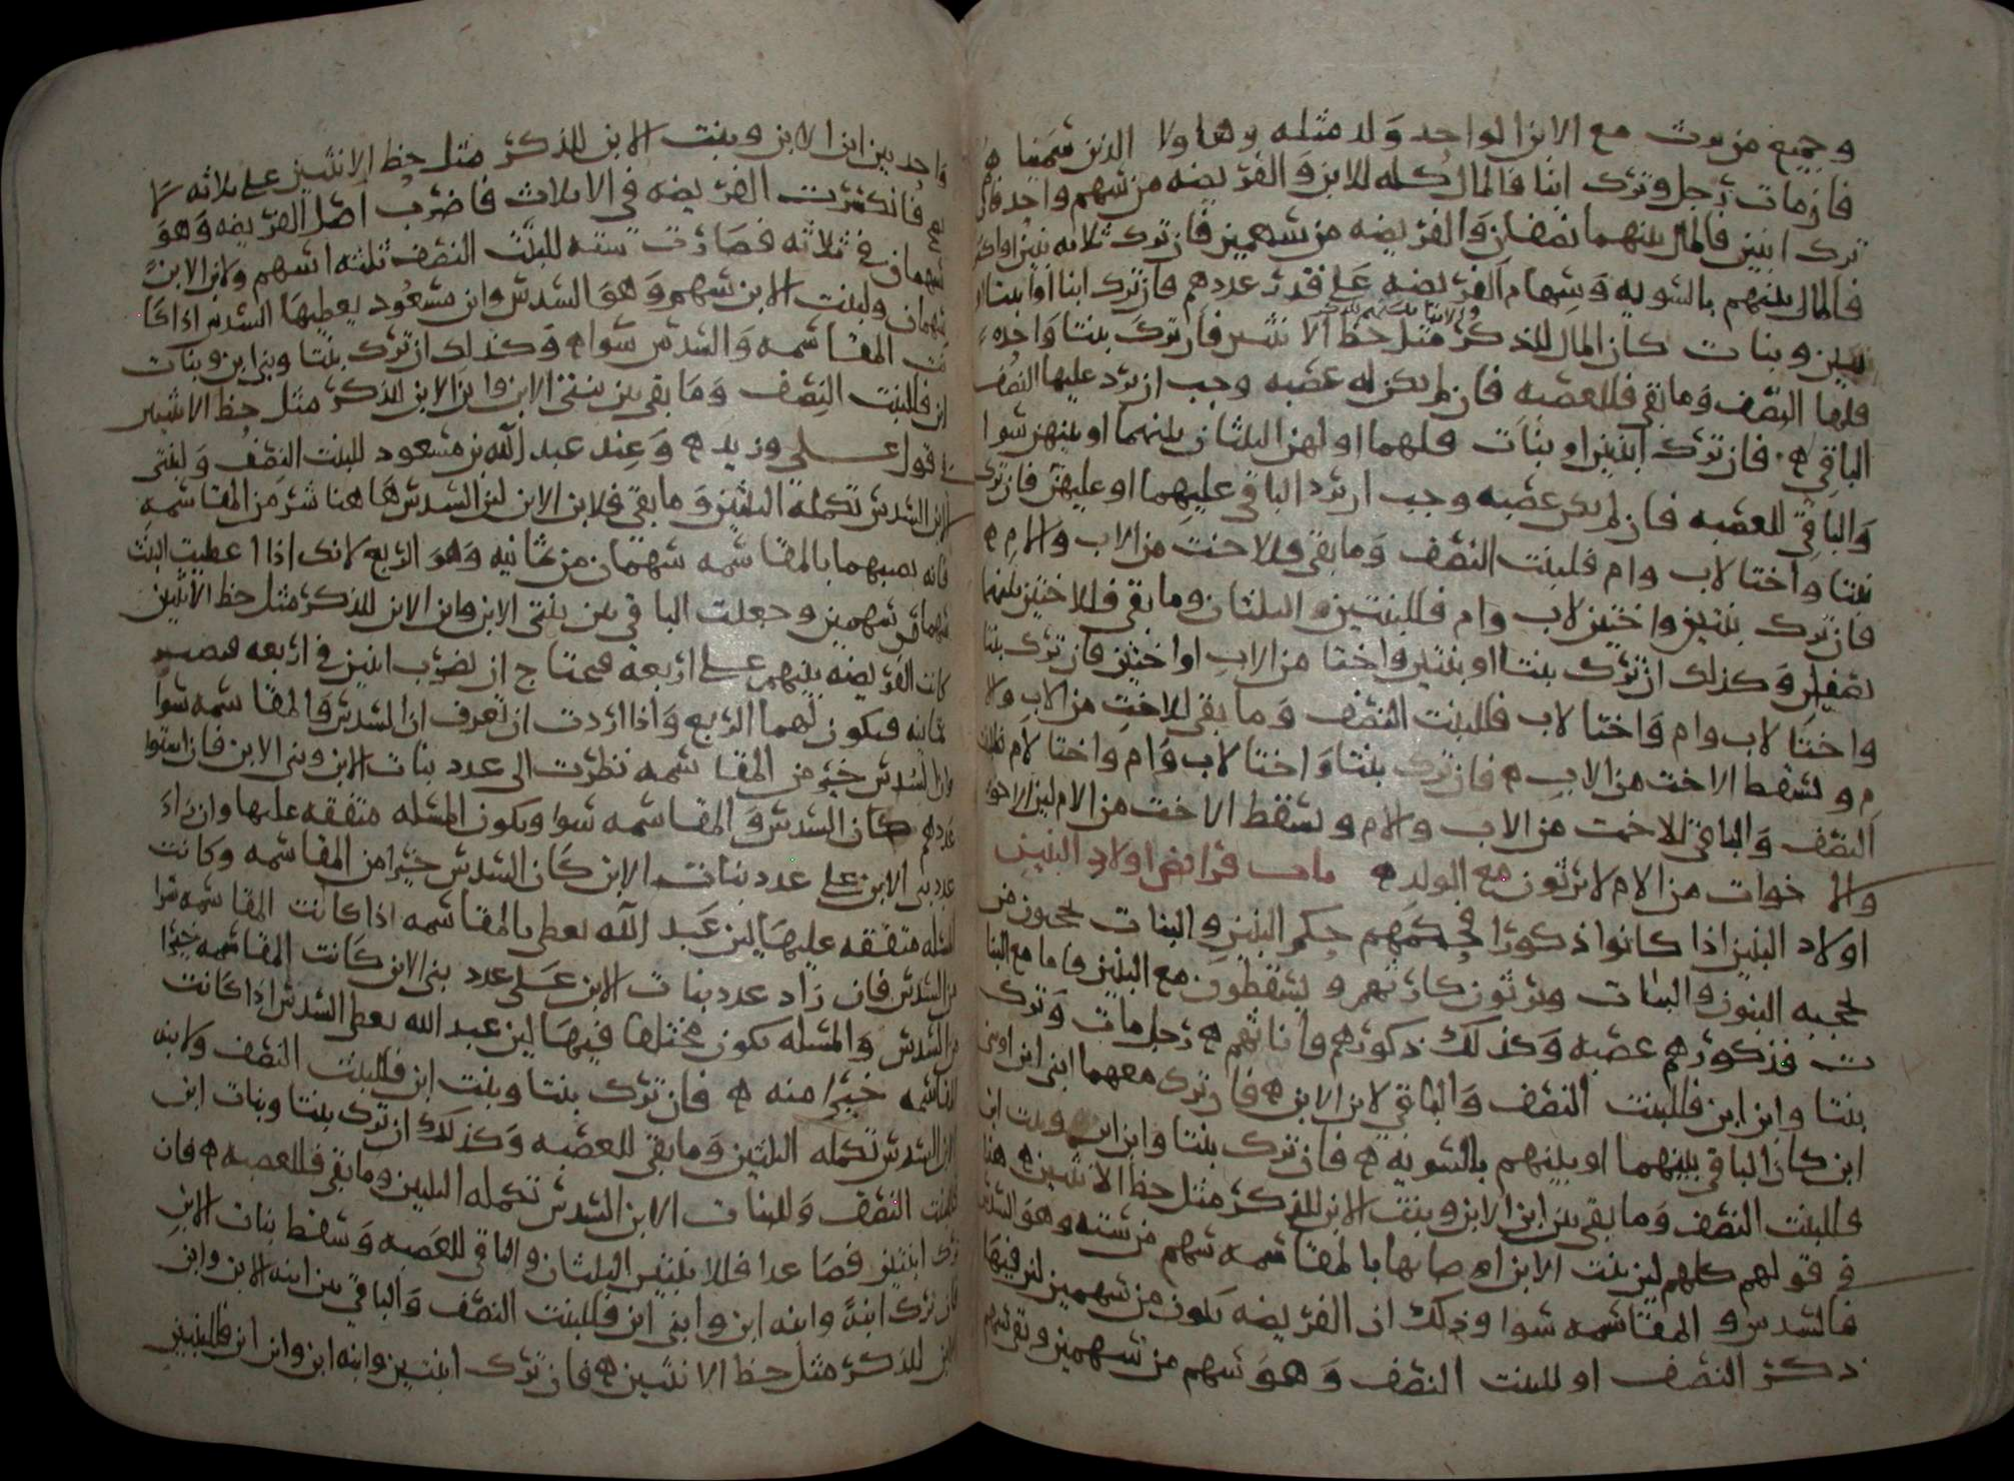 وجميع من يرث مع الابن الواحد ولد مثله وهاولا الذين سمينا ه
فان مات رجل وترك ابنا فالمال كله للابن والفريضه من سهم واحد فان
ترك ابنين فالمال بينهما نصفان والفريضه من سهمين فان ترك ثلاثه بنين او اكثر
فالمال بينهم بالسويه وسهام الفريضه على قدر عددهم فان ترك ابنا او ابنتا او
بنين وبنات كان المال للذكر مثل حظ الانثيين فان ترك بنتا واحده
فلها النصف وما بقي فللعصبه فان لم يكن له عصبه وجب ان يرد عليها النصف
الباقي ه فان ترك ابنتين او بنات فلهما او لهن الثلثان بينهما او بينهن سوا
والباقي للعصبه فان لم يكن عصبه وجب ان يرد الباقي عليهما او عليهن فان ترك
بنتا واختا لاب وام فلبنت النصف وما بقي فللاخت من الاب والام ه
فان ترك بنتين واختين لاب وام فللبنتين الثلثان وما بقي فللاختين بينهما
نصفين وكذلك ان ترك بنتا او بنتين واختا من الاب او اختين فان ترك بنتا
واختا لاب وام واختا لاب فللبنت النصف وما بقي للاخت من الاب والا
م وتسقط الاخت من الاب ه فان ترك بنتا واختا لاب وام واختا لام فللبنت
النصف والباقي للاخت من الاب والام وتسقط الاخت من الام لين الاخوه
والا خوات من الام لا يرثون مع الولد ه باب فرائض اولاد البنين
اولاد البنين اذا كانوا ذكورا فحكمهم حكم البنين والبنات يحجبون من
يحجبه البنون والبنات ويرثون كارثهم ويسقطون مع البنين واما مع البنا
ت فذكورهم عصبه وكذلك ذكورهم واناثهم ه رجل مات وترك
بنتا وابن ابن فللبنت النصف والباقي لابن الابن ه فان ترك معهما ابني ابن او بني
ابن كان الباقي بينهما او بينهم بالسويه ه فان ترك بنتا وابن ابن وبنت ابن
فللبنت النصف وما بقي بين ابن الابن وبنت الابن للذكر مثل حظ الانثيين ه هنا
في قولهم كلهم لين بنت الابن اصابها بالمقاسمه سهم من سته وهو السدس
فالسدس والمقاسمه سوا وذلك ان الفريضه تكون من سهمين لين فيها
ذكر النصف او للبنت النصف وهو سهم من سهمين وبقي سهم
واحد بين ابن الابن وبنت الابن للذكر مثل حظ الانثيين على ثلاثه لا
فانكسرت الفريضه في الاثلاث فاضرب اصل الفريضه وهو
سهمان في ثلاثه فصارت سته للبنت النصف ثلثه اسهم ولابن الابن
سهمان ولبنت الابن سهم وهو السدس وابن مسعود يعطيها السدس اذا كا
نت المقاسمه والسدس سوا ه وكذلك ان ترك بنتا وبني ابن وبنات
ابن فللبنت النصف وما بقي بين بنتي الابن وابن الابن للذكر مثل حظ الانثيين
في قول علي وزيد ه وعند عبد الله بن مسعود للبنت النصف ولبنتي
الابن السدس تكمله الثلثين وما بقي فلابن الابن لين السدس هاهنا شر من المقاسمه
فانه نصيبهما بالمقاسمه سهمان من ثمانيه وهو الربع لانك اذا اعطيت البنت
سهما من سهمين وجعلت الباقي بين بنتي الابن وابن الابن للذكر مثل حظ الانثيين
كانت الفريضه بينهم على اربعه فتحتاج ان تضرب اثنين في اربعه فتصير
ثمانيه فيكون لهما الربع واذا اردت ان تعرف ان السدس والمقاسمه سوا
وان السدس خير من المقاسمه نظرت الى عدد بنات الابن وبني الابن فان استوا
عددهم كان السدس والمقاسمه سوا وتكون المسله متفقه عليها وان زاد
عدد بني الابن على عدد بنات الابن كان السدس خيرا من المقاسمه وكانت
المسله متفقه عليها لين عبد الله يعطي بالمقاسمه اذا كانت المقاسمه شرا
من السدس فان زاد عدد بنات الابن على عدد بني الابن كانت المقاسمه خيرا
من السدس والمسله تكون مختلفا فيها لين عبد الله يعطي السدس اذا كانت
المقاسمه خيرا منه ه فان ترك بنتا وبنت ابن فللبنت النصف ولابنه
الابن السدس تكمله الثلثين وما بقي للعصبه وكذلك ان ترك بنتا وبنات ابن
فللبنت النصف وللبنات الابن السدس تكمله الثلثين وما بقي فللعصبه ه فان
ترك ابنتين فصاعدا فللابنتين الثلثان والباقي للعصبه وسقط بنات الابن
فان ترك ابنة وابنه ابن وابني ابن فللبنت النصف والباقي بين ابنه الابن وابن
الابن للذكر مثل حظ الانثيين ه فان ترك ابنتين وابنه ابن وابن ابن فللبنتين